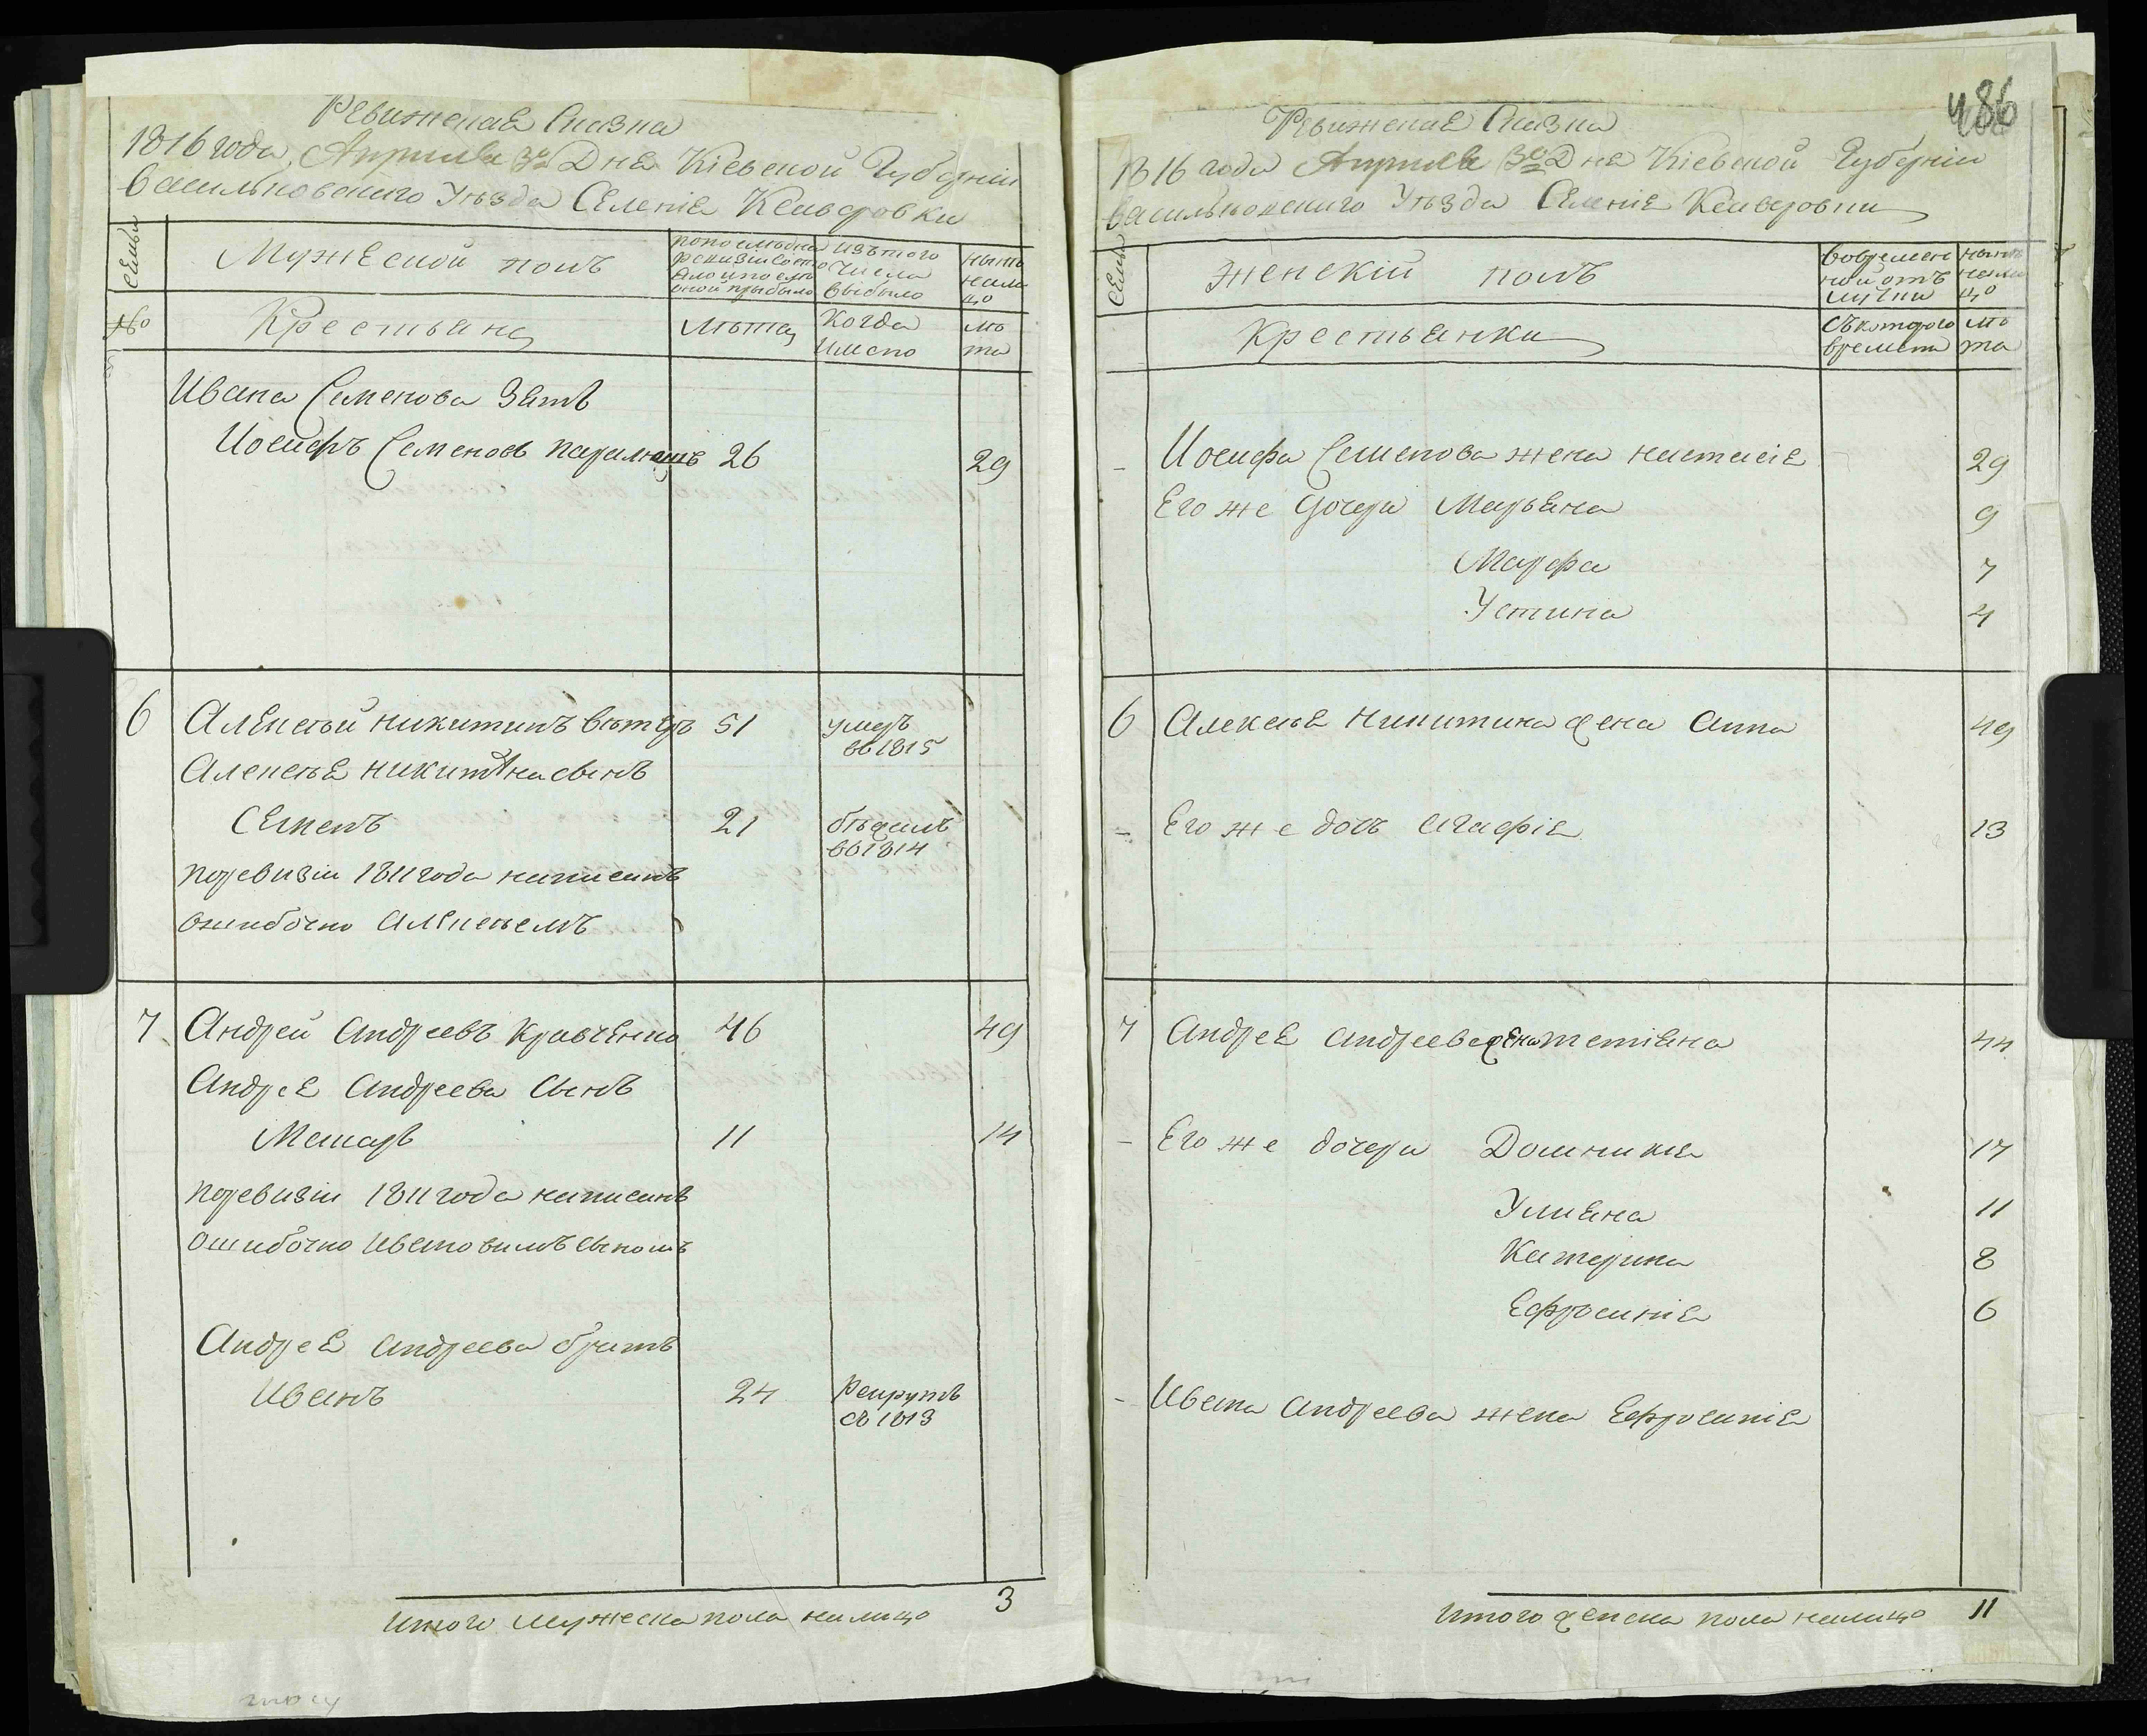 Ревижская Сказка
1816 года Априля 30 Дня Кіевской Губерніи
Васильковского Уѣзда Селенія Ксаверовки
семьи
Мужеской полъ
по последней ревизіи состояло и после оной прибыло
изътого числа выбыло
нынѣ налицо
№
Крестьяне
Лѣта
Когда имено
лѣта
Ивана Семенова Зять
Иосифъ Семеновъ 26 29
6 Алексѣй Никитинъ Вѣтеръ 51 умеръ
въ 1815
Алексѣя Никитина сынъ
Семенъ 21 бѣжалъ
въ 1814
поревизіи 1811 года написанъ
ошибочно Алексѣемъ
7 Андрей Андреевъ Кравченко 46 49
Андрея Андреева Сынъ
Макаръ 11 14
поревизіи 1811 года написанъ
ошибочно Ивановимъ сыномъ
Андрея Андреева братъ
Иванъ 24 Рекрутъ
съ 1813
Итого мужеска пола налицо 3
486
Ревижская Сказка
1816 года Априля 30 Дня Кіевской Губерніи
Васильковского Уѣзда Селенія Ксаверовки
семьи
женскій полъ
вовременной отлучки
нынѣ налицо
Крестьянки
Съкоторого времени
лѣта
– Иосифа Семенова жена Настасія 29
Его же дочери Марьяна 9
Марфа 7
Устина 4
6 Алексѣя Никитина жена Анна 49
– Его же дочь Агафія 13
7 Андрея Андреева жена Тетіяна 44
– Его же дочери Домникія 17
Улияна 11
Катерина 8
Ефросинія 6
– Ивана Андреева жена Ефросинія
Итого женска пола налицо 11